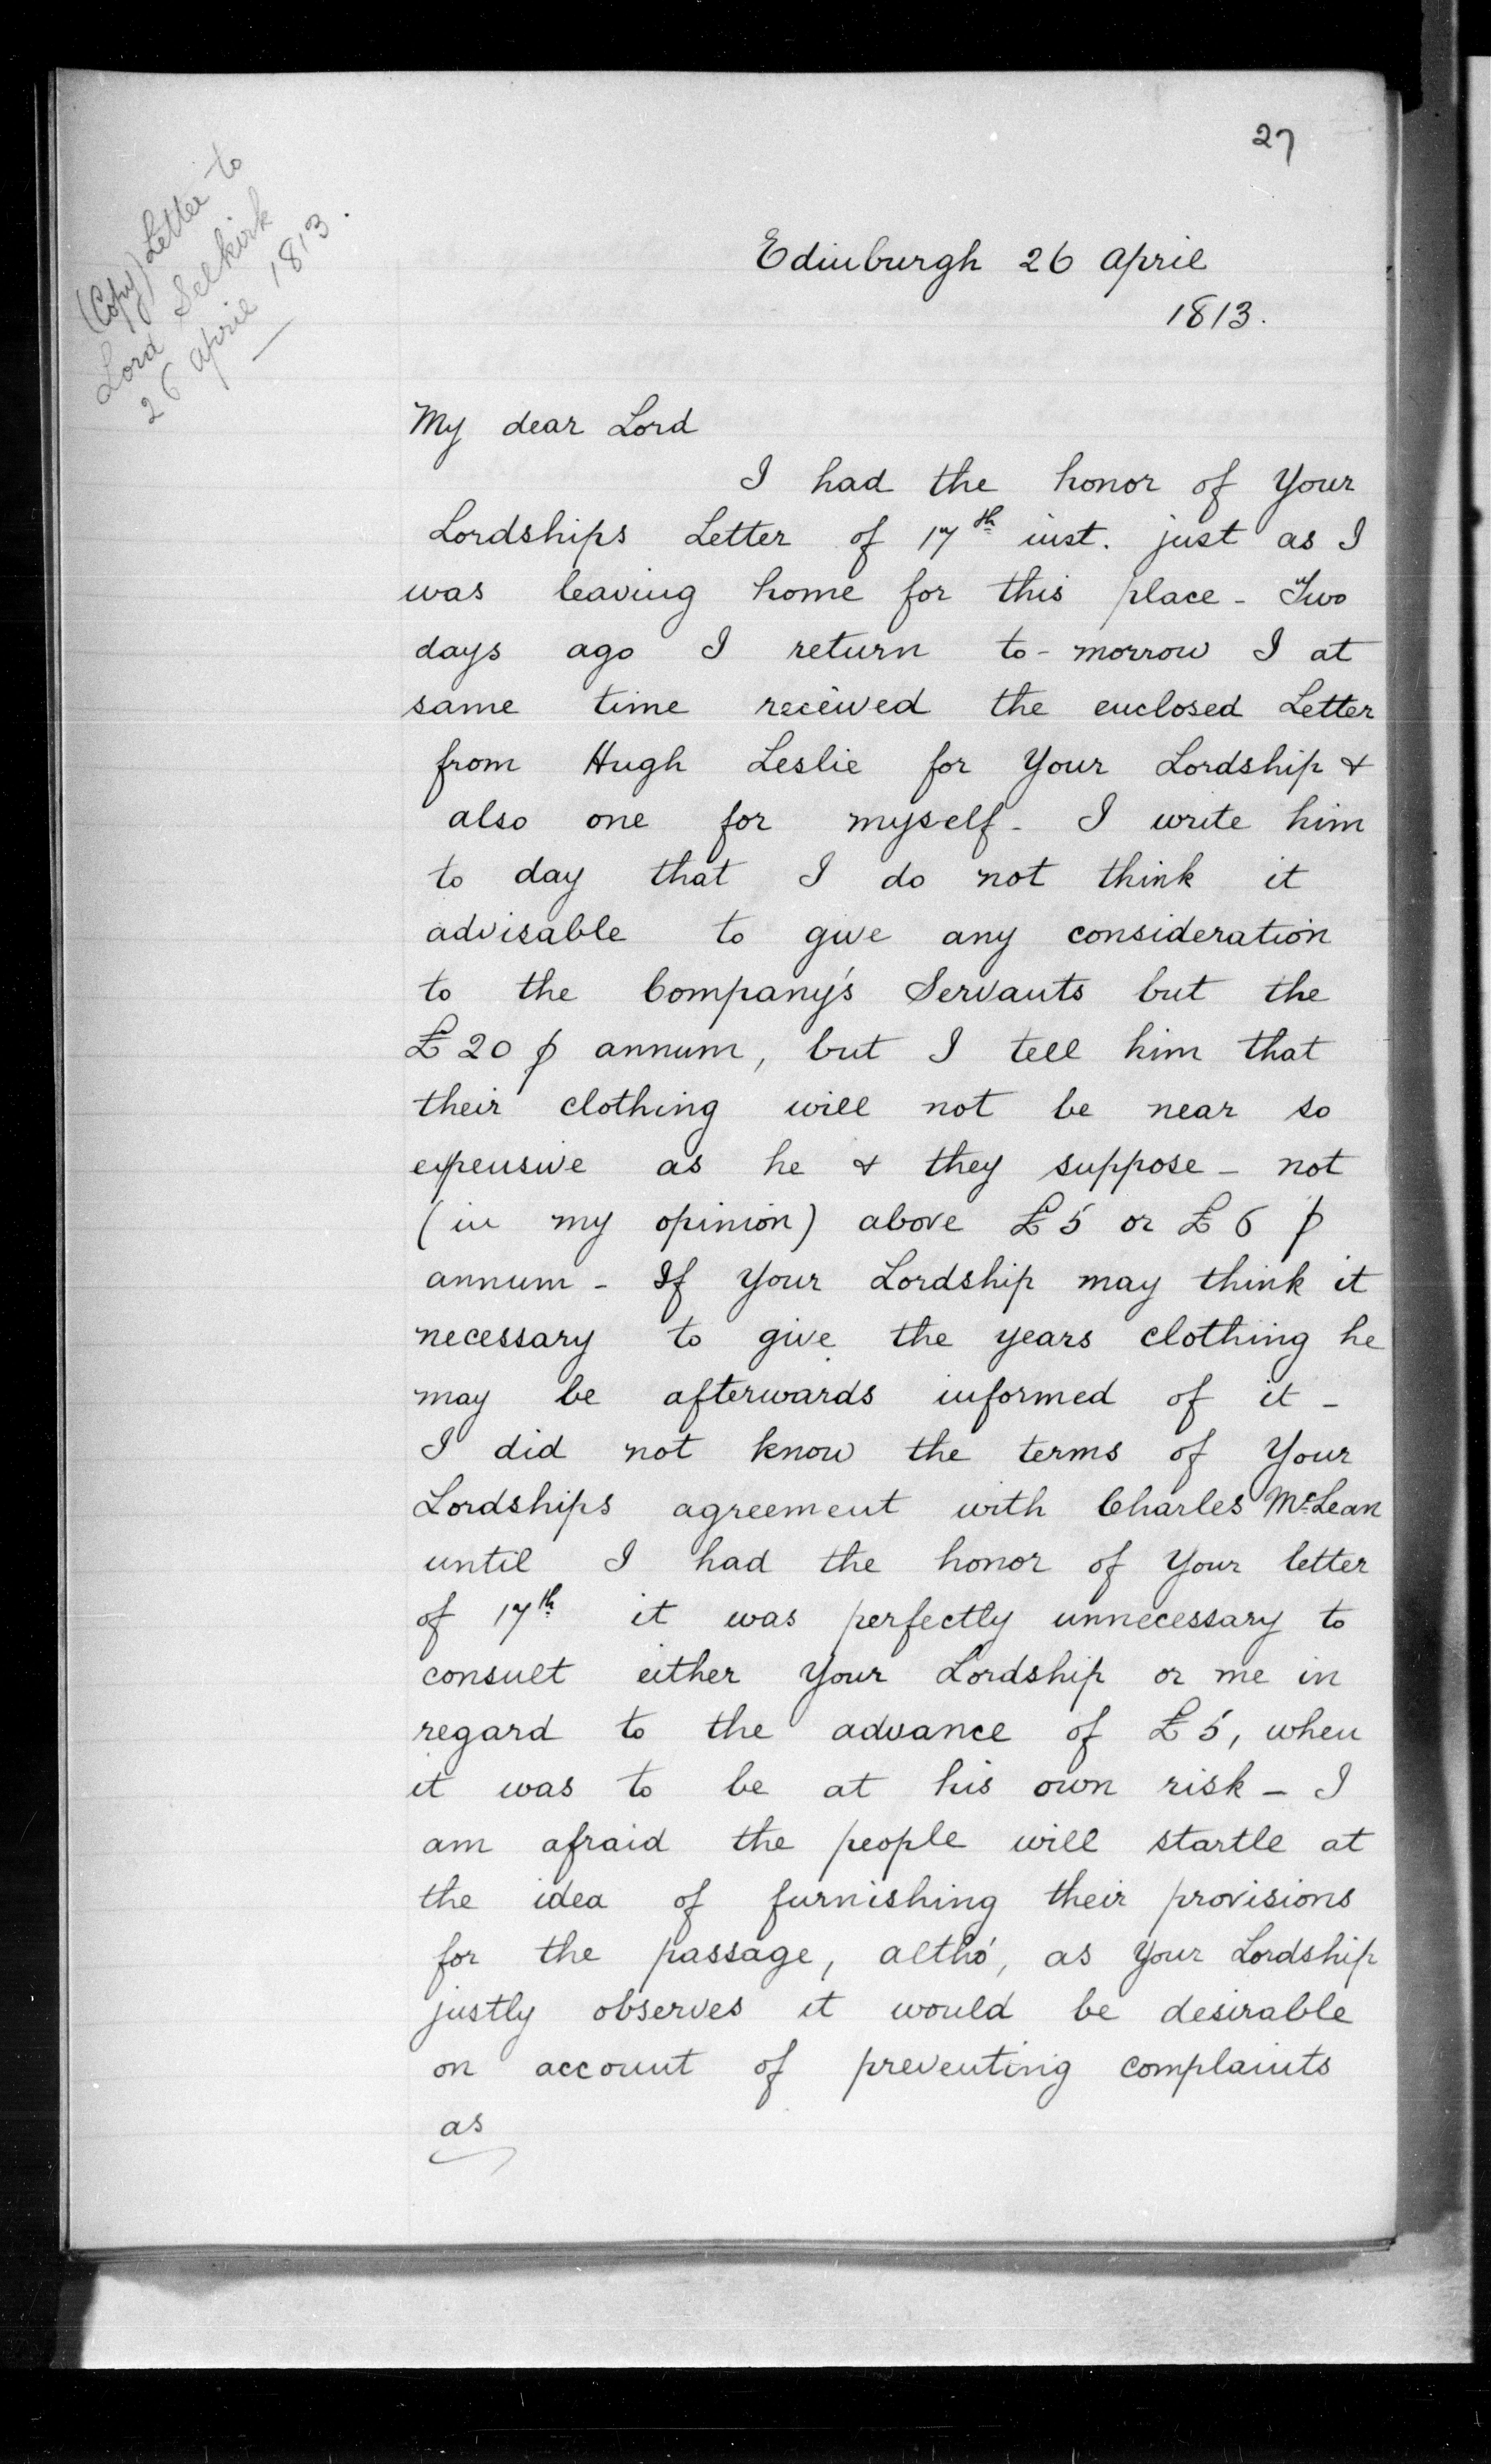 27
(Copy) Letter to
Lord Selkirk
26 April 1813.
Edinburgh 26 April
1813.
My dear Lord
I had the honor of Your
Lordships Letter of 17th inst. just as I
was leaving home for this place - Two
days ago I return to-morrow I at
same time received the enclosed Letter
from Hugh Leslie for Your Lordship &
also one for myself - I write him
to day that I do not think it
advisable to give any consideration
to the Company's Servants but the
£20 ⅌ annum, but I tell him that
their clothing will not be near so
expensive as he & they suppose - not
(in my opinion) above £5 or £6 ⅌
annum - If Your Lordship may think it
necessary to give the years clothing he
may be afterwards informed of it -
I did not know the terms of Your
Lordships agreement with Charles McLean
until I had the honor of Your letter
of 17th it was perfectly unnecessary to
consult either Your Lordship or me in
regard to the advance of £5, when
it was to be at his own risk - I
am afraid the people will startle at
the idea of furnishing their provisions
for the passage, altho', as Your Lordship
justly observes it would be desirable
on account of preventing complaints
as